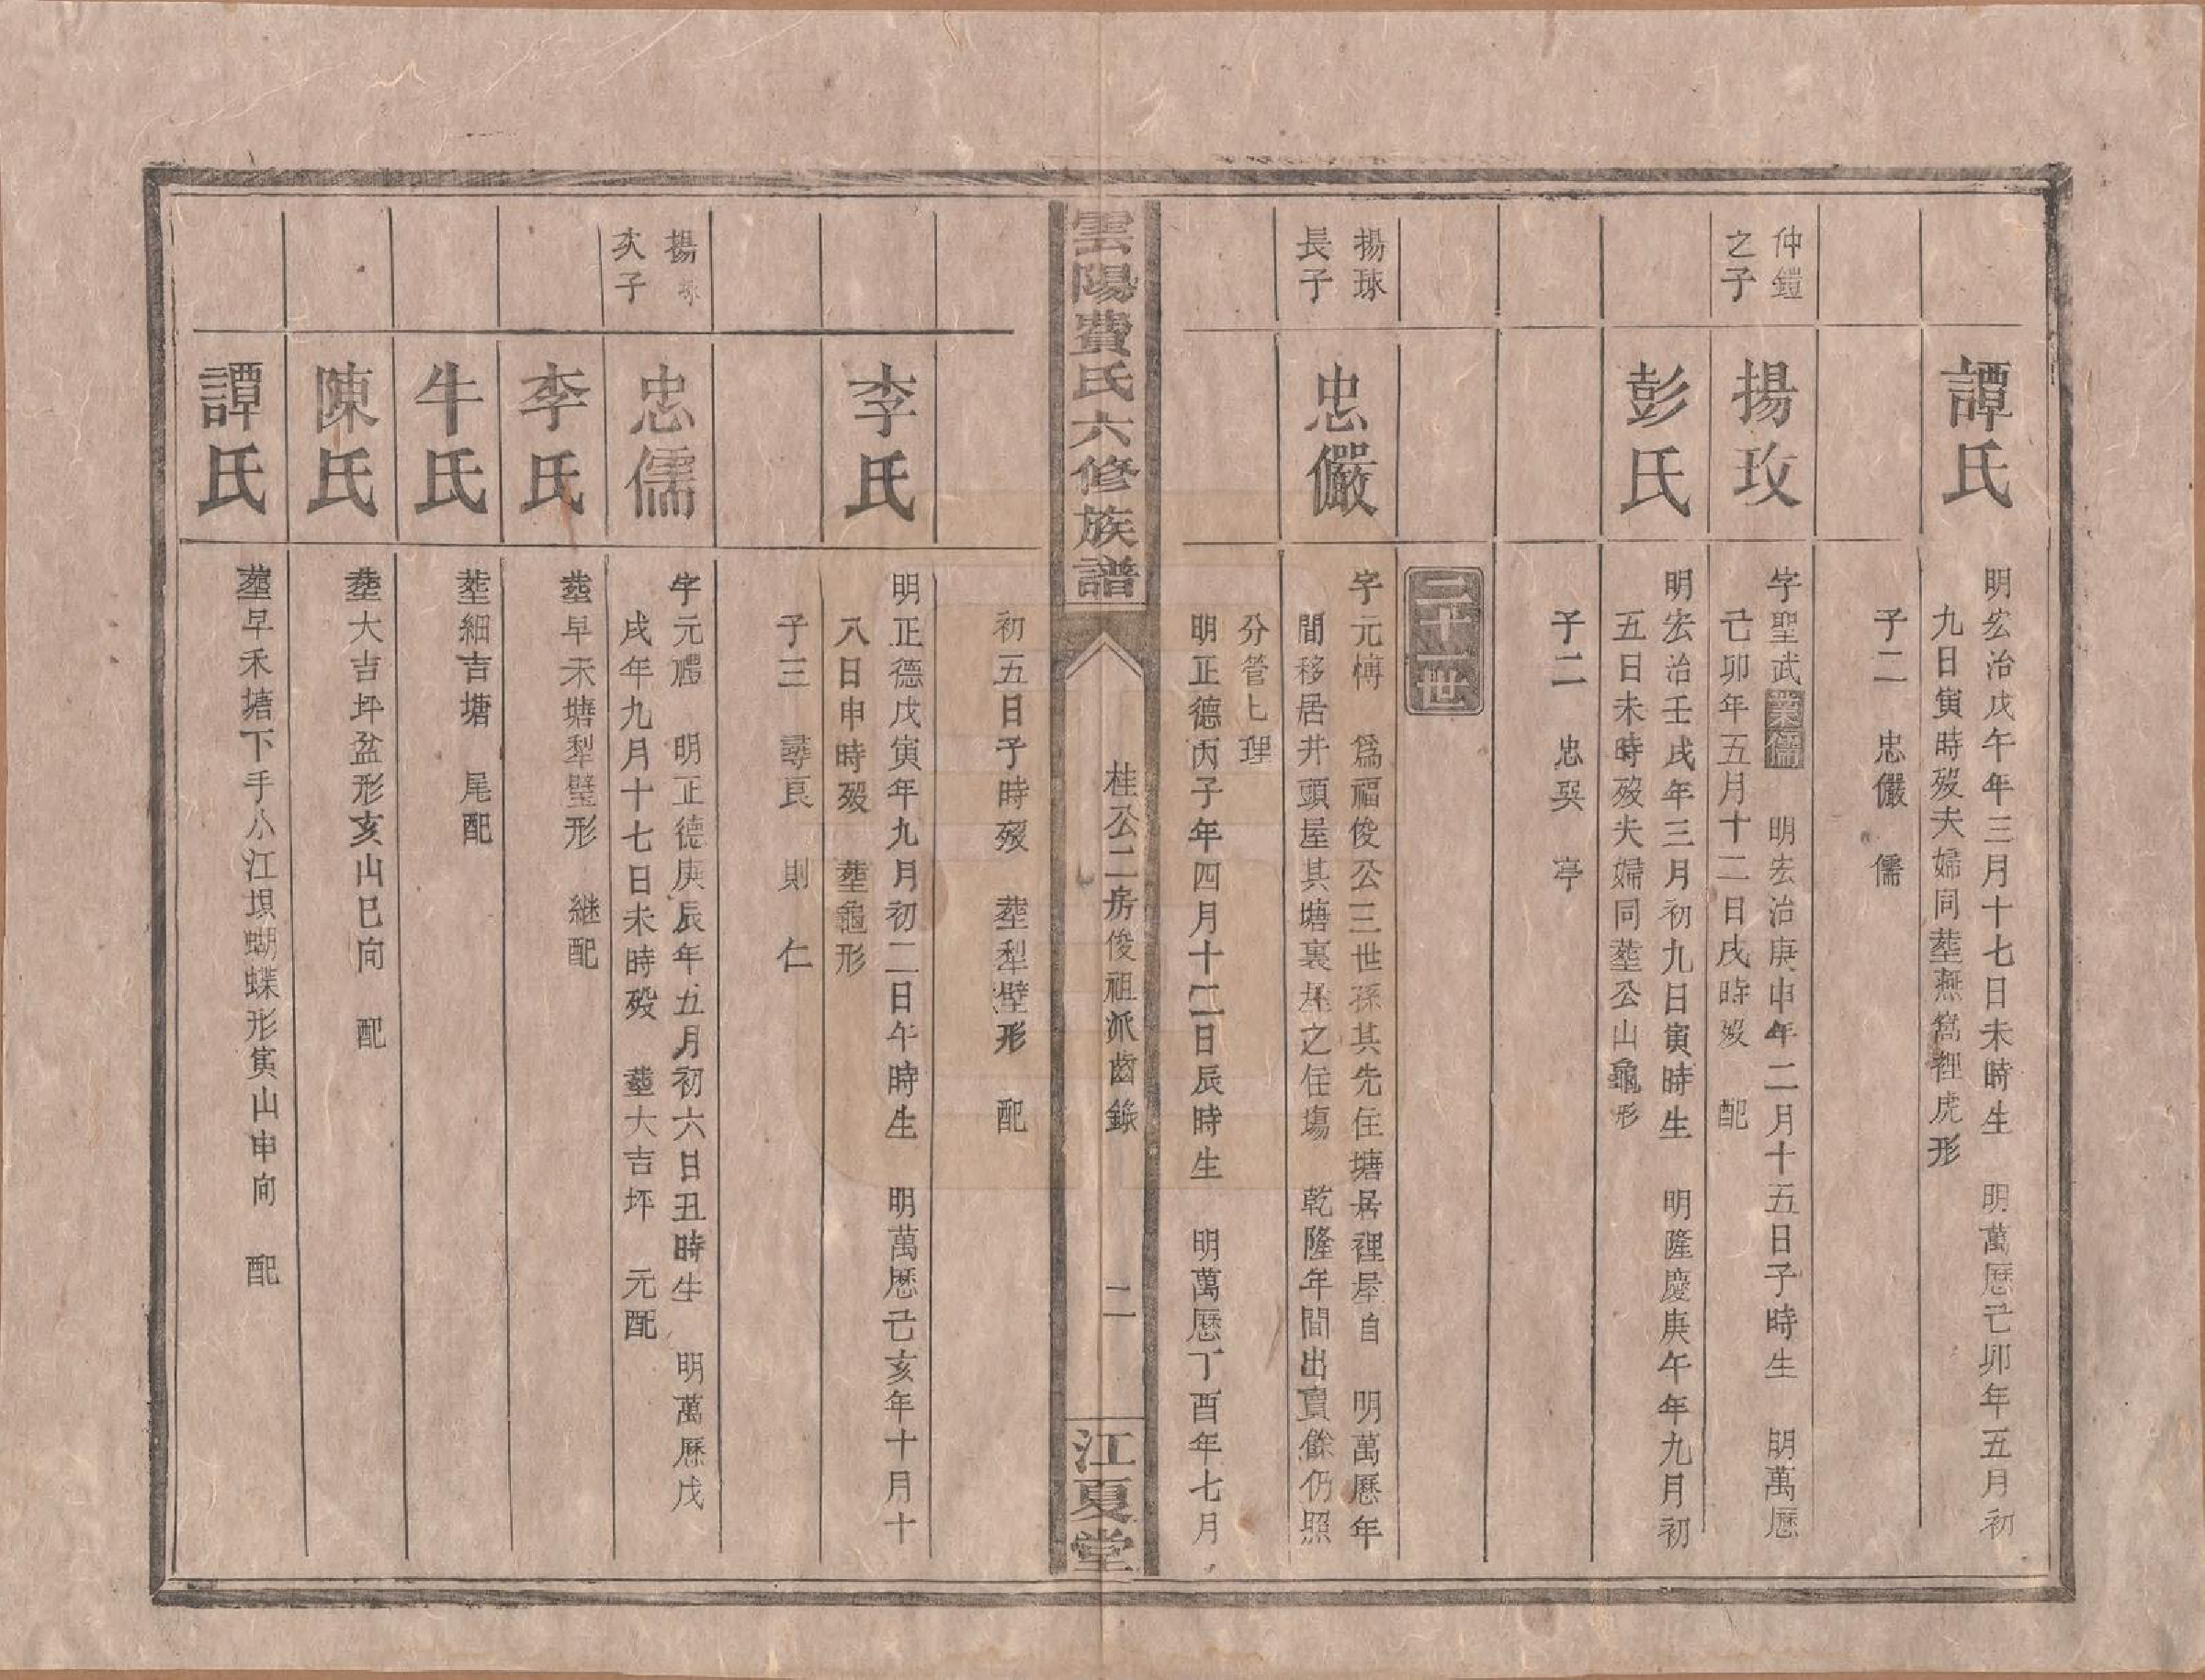 譚氏
明宏治戊午年三月十七日未時生 明萬歷己卯年五月初
九日寅時歿夫婦同塟燕窩裡虎形
子二 忠儼 儒
仲鎧
之子
揚玫
字聖武業儒 明宏治庚申年二月十五日子時生 明萬歷
己卯年五月十二日戌時歿 配
彭氏
明宏治壬戌年三月初九日寅時生 明隆慶庚午年九月初
五日未時歿夫婦同塟公山龜形
子二 忠奭 亭
二十一世
揚球
長子
忠儼
字元愽 爲福俊公三世孫其先住塘居裡屋自 明萬歷年
間移居井頭屋其塘裏屋之住塲 乾隆年間出賣餘仍照
分管七理
明正德丙子年四月十二日辰時生 明萬歷丁酉年七月
雲陽費氏六修族譜
桂公二房俊祖派齒錄
二
江夏堂
初五日子時歿 塟犁壁形 配
李氏
明正德戊寅年九月初二日午時生 明萬歷己亥年十月十
八日申時歿 塟龜形
子三 尋良 則 仁
揚球
次子
忠儒
字元禮 明正德庚辰年五月初六日丑時生 明萬歷戊
戌年九月十七日未時歿 塟大吉坪 元配
李氏
塟早禾塘犁壁形 継配
牛氏
塟細吉塘 尾配
陳氏
塟大吉坪盆形亥山巳向 配
譚氏
塟早禾塘下手小江垻蝴蝶形寅山申向 配